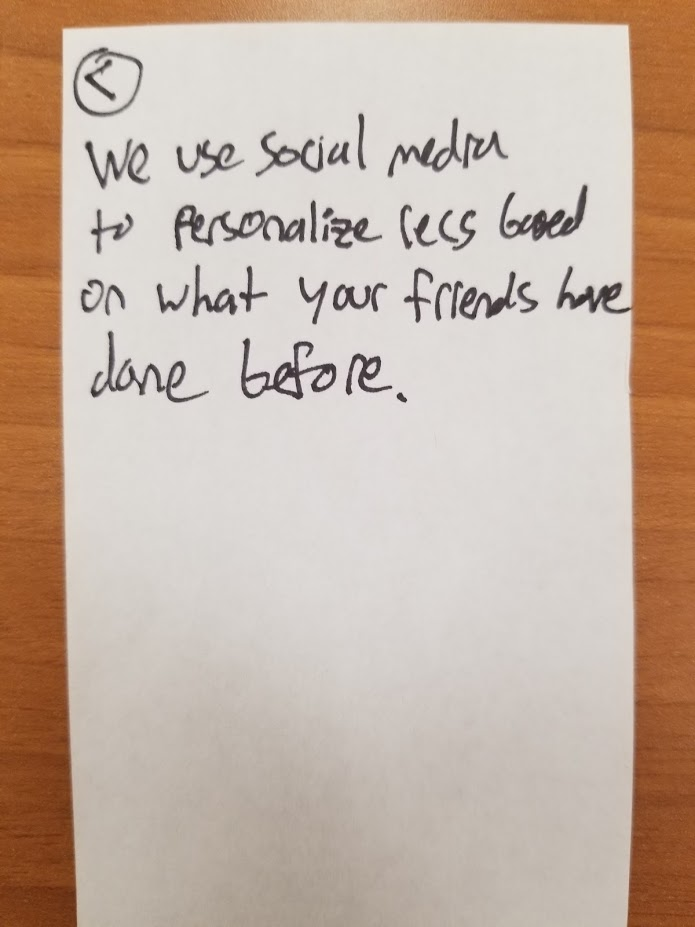 <
We use social media
to personalize recs based
on what your friends have
done before.